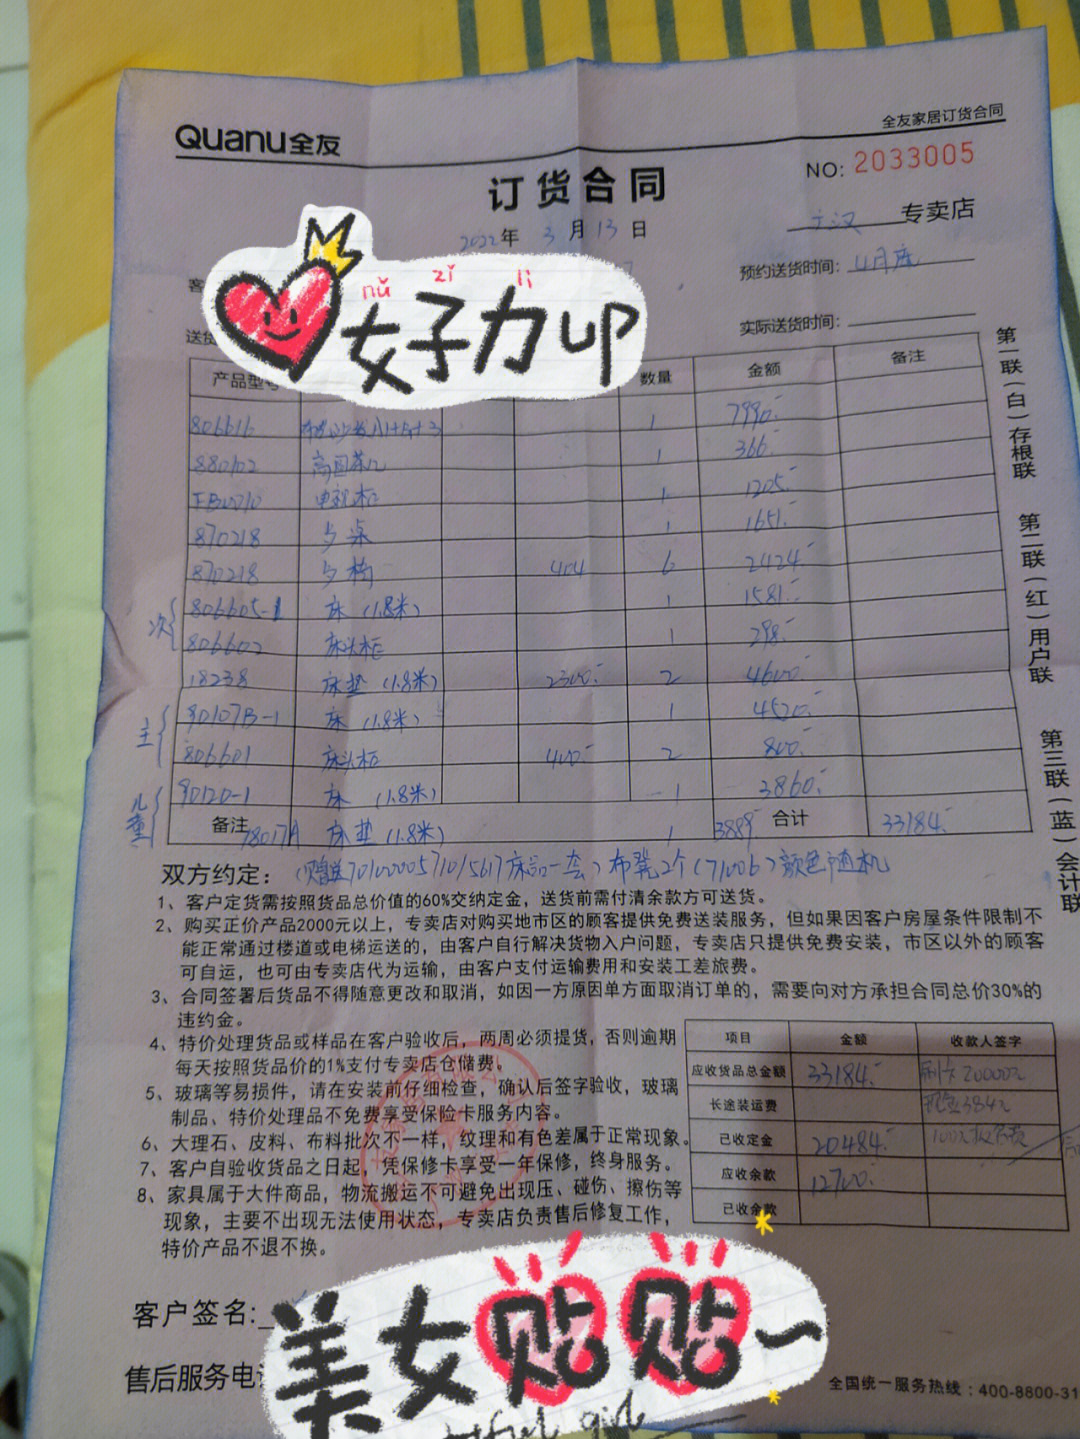 Quanu全友
全友家居订货合同
NO: 2033005
订货合同
2022年 3月13日
广汉 专卖店
预约送货时间: 4月底
实际送货时间:
nǚ zǐ lì
女子力up
送货
产品型号 数量 金额 备注
806616 1 7990.-
880102 1 366.
电视柜 1 1205.-
870218 夕桌 1 1651.-
870218 夕椅 404 6 2424.-
次 806605-1 床 (1.8米) 1 1581.-
806602 床头柜 1 298.-
18238 床垫 (1.8米) 2300.- 2 4600.-
主 90107B-1 床 (1.8米) 1 4520.-
806601 床头柜 400.- 2 800.-
儿童 90120-1 床 (1.8米) 1 3860.-
备注 78017A 床垫 (1.8米) 1 3889 合计 33184.-
第一联(白)存根联 第二联(红)用户联 第三联(蓝)会计联
双方约定: 床品一套) 布凳2个 (71006) 颜色随机
1、客户定货需按照货品总价值的60%交纳定金，送货前需付清余款方可送货。
2、购买正价产品2000元以上，专卖店对购买地市区的顾客提供免费送装服务，但如果因客户房屋条件限制不
能正常通过楼道或电梯运送的，由客户自行解决货物入户问题，专卖店只提供免费安装，市区以外的顾客
可自运，也可由专卖店代为运输，由客户支付运输费用和安装工差旅费。
3、合同签署后货品不得随意更改和取消，如因一方原因单方面取消订单的，需要向对方承担合同总价30%的
违约金。
4、特价处理货品或样品在客户验收后，两周必须提货，否则逾期
每天按照货品价的1%支付专卖店仓储费。
5、玻璃等易损件，请在安装前仔细检查，确认后签字验收，玻璃
制品、特价处理品不免费享受保险卡服务内容。
6、大理石、皮料、布料批次不一样，纹理和有色差属于正常现象。
7、客户自验收货品之日起，凭保修卡享受一年保修，终身服务。
8、家具属于大件商品，物流搬运不可避免出现压、碰伤、擦伤等
现象，主要不出现无法使用状态，专卖店负责售后修复工作，
特价产品不退不换。
项目 金额 收款人签字
应收货品总金额 33184.- 刷卡20000元
长途装运费 现金384元
已收定金 20484.-
应收余款 12700.
已收余款
客户签名:
美女贴贴~
售后服务电话
全国统一服务热线：400-8800-31
girl